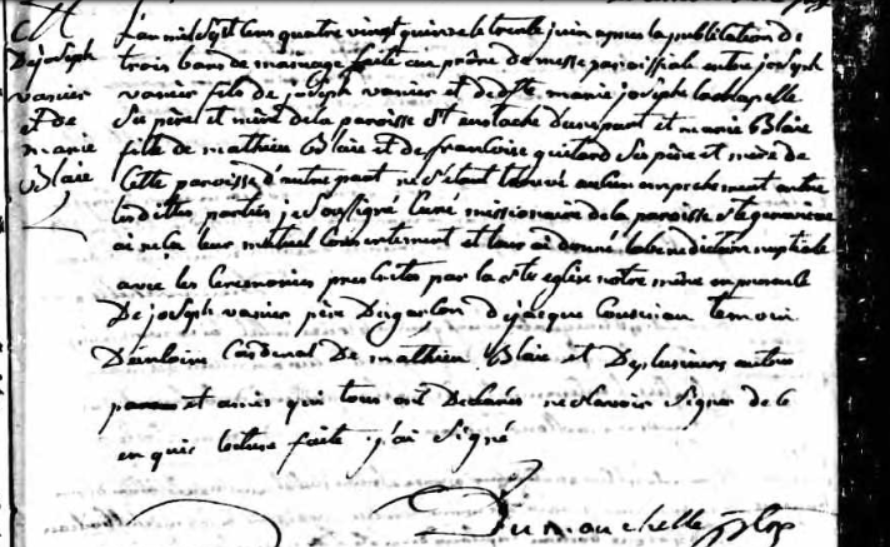 M
De joseph
vanier
et de
marie
Blaie
L'an mil sept cens quatre vingt quinze le trente juin apres la publication de
trois bans de mariage faite au prône de messe paroissiale entre joseph
vanier fils de joseph vanier et de marie josephe lachapelle
ses père et mère de la paroisse St eustache d'une part et marie Blaie
fille de mathieu Blaie et de francoise guitard ses père et mere de
Cette paroisse d'autre part ne s'etant trouvé aucun empechement entre
les dittes parties je soussigné Curé missionaire de la paroisse Ste genevieve
ai reçu leur mutuel Consentement et leur ai donné la benediction nuptiale
avec les Ceremonies prescrites par la ste eglise notre mère en presence
De joseph vanier père Du garçon De jacque temoin
D'antoine Cardinal De mathieu Blaie et De plusieurs autres
et amis qui tous ont Declarés ne sçavoir signer de ce
en quis lecture faite j'ai signé
Dumouchelle ptre